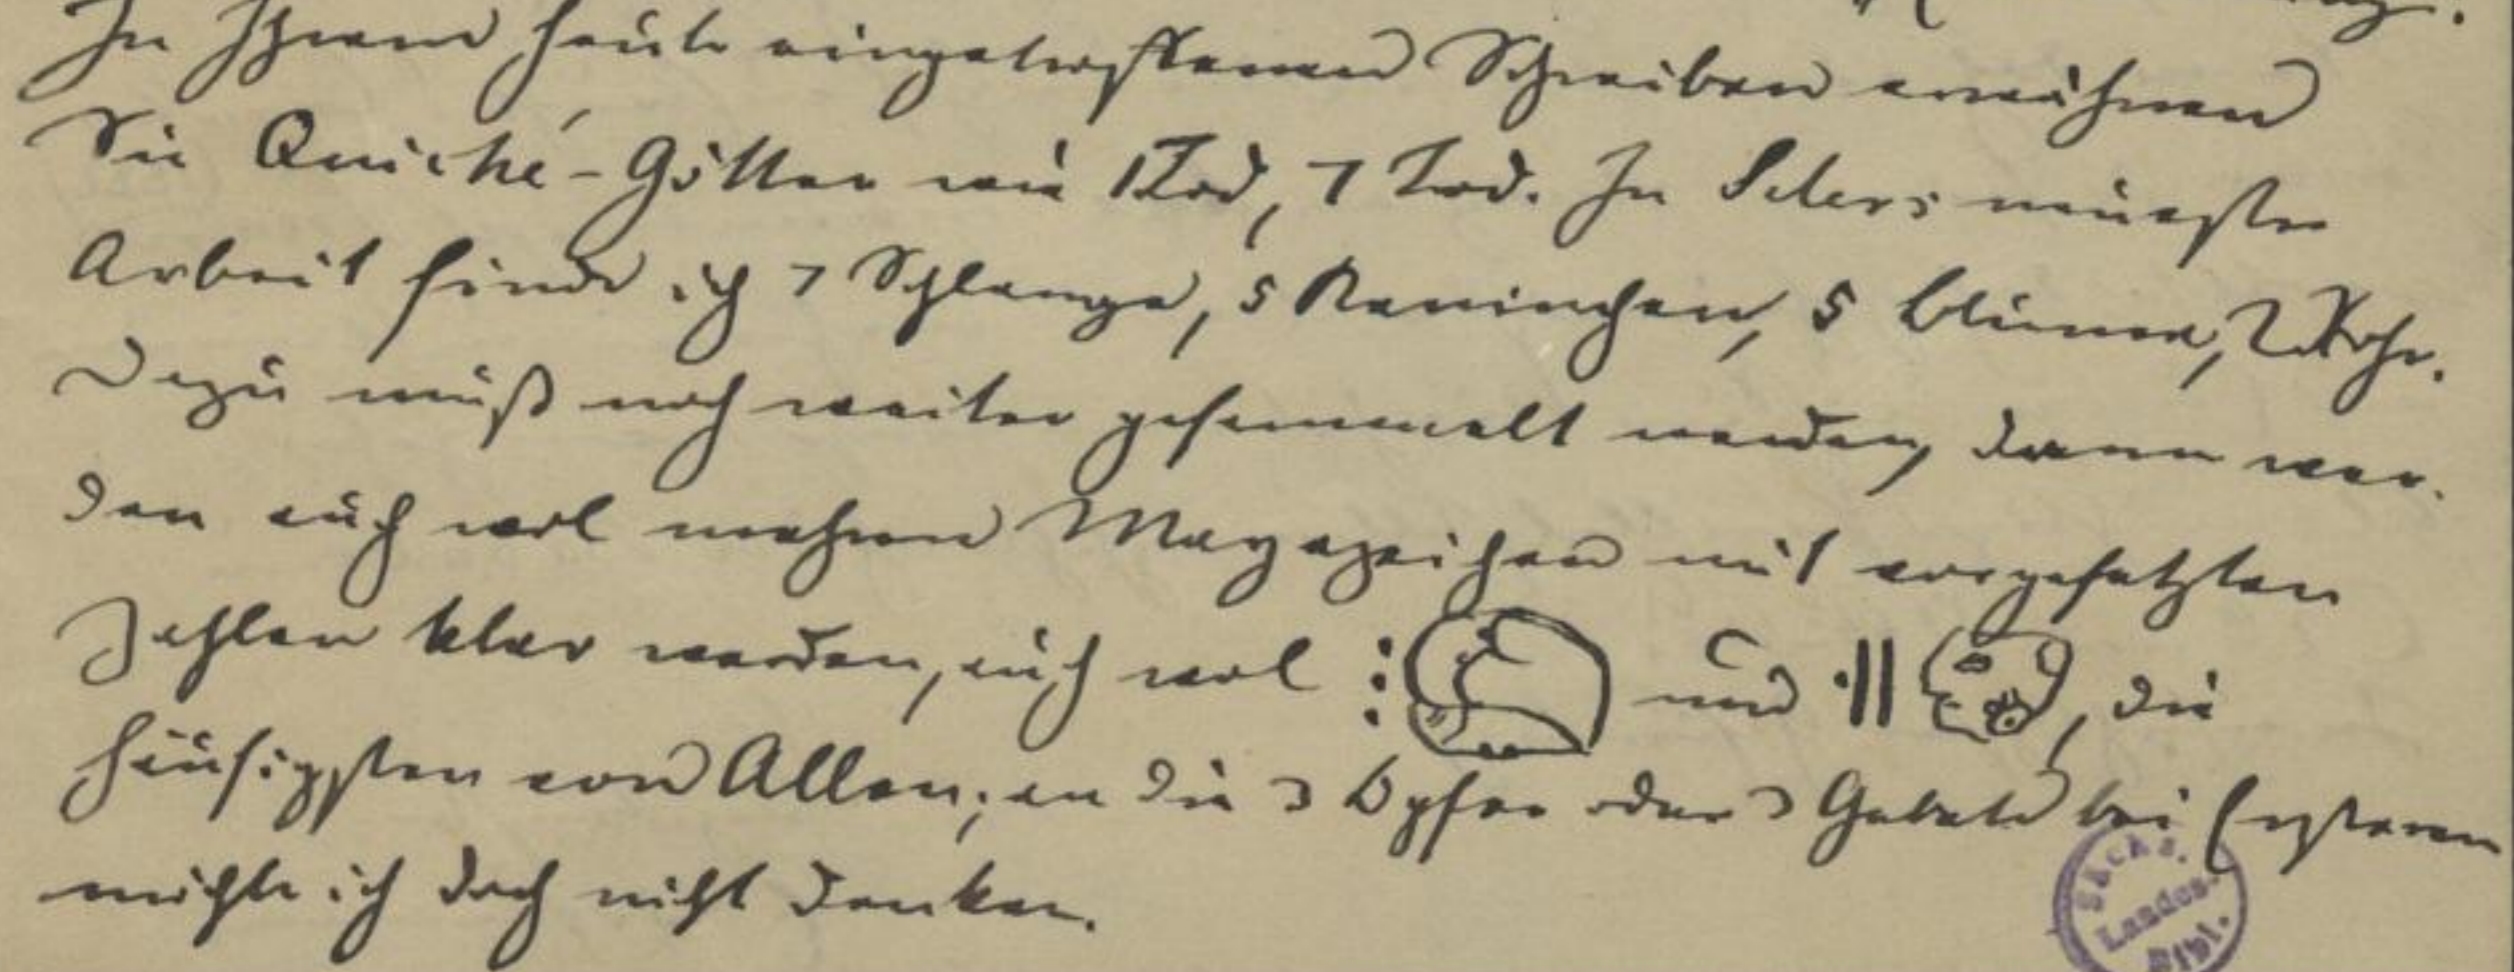 In Ihrem heute eingetroffenen Schreiben erwähnen
Sie Quiché-Götter wie 1 Tod, 7 Tod. In Selers neuester
Arbeit finde ich 7 Schlange, 5 Kaninchen, 5 Blume, 2 Rohr.
Dazu muß noch weiter gesammelt werden, dann wer-
den auch wol mehrere Mayazeichen mit vorgesetzten
Zahlen klar werden, auch wol und , die
häufigsten von Allen; an die 3 Opfer oder 3 Gebete bei Ersterem
möchte ich doch nicht denken.
Sächs.
Landes-
Bibl.